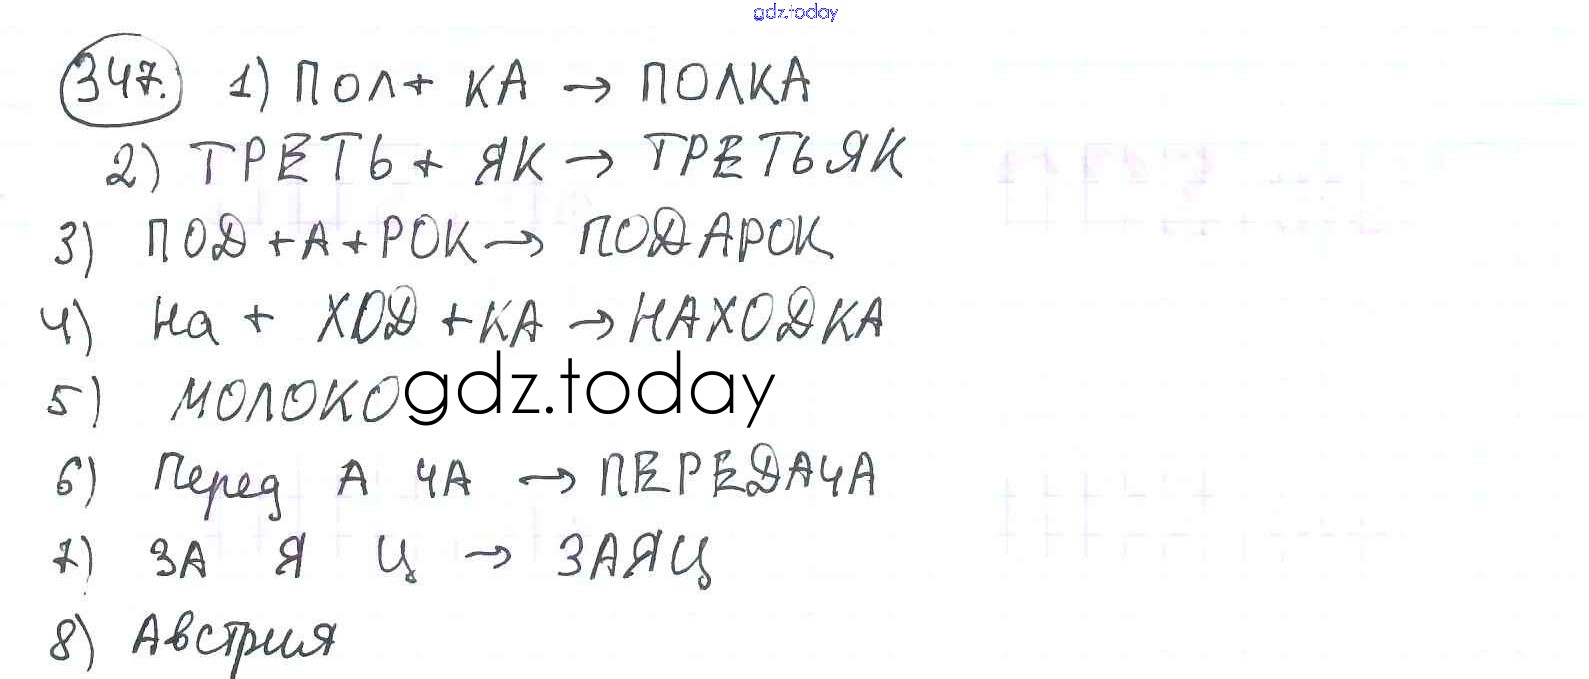 gdz.today
347. 1) ПОЛ + КА → ПОЛКА
2) ТРЕТЬ + ЯК → ТРЕТЬЯК
3) ПОД + А + РОК → ПОДАРОК
4) На + ХОД + КА → НАХОДКА
5) МОЛОКО gdz.today
6) Перед А ЧА → ПЕРЕДАЧА
7) ЗА Я Ц → ЗАЯЦ
8) Австрия